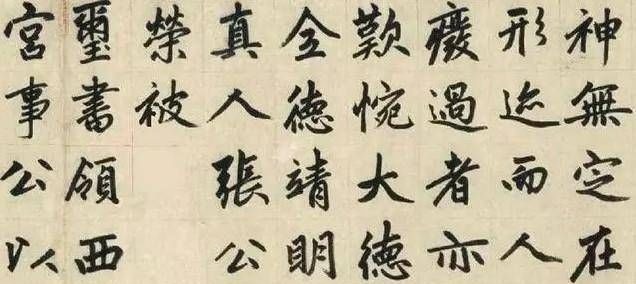 神無定在
形迹而人
廢過者亦
歎惋大德
全德靖明
真人張公
榮被
璽書領西
宮事公以